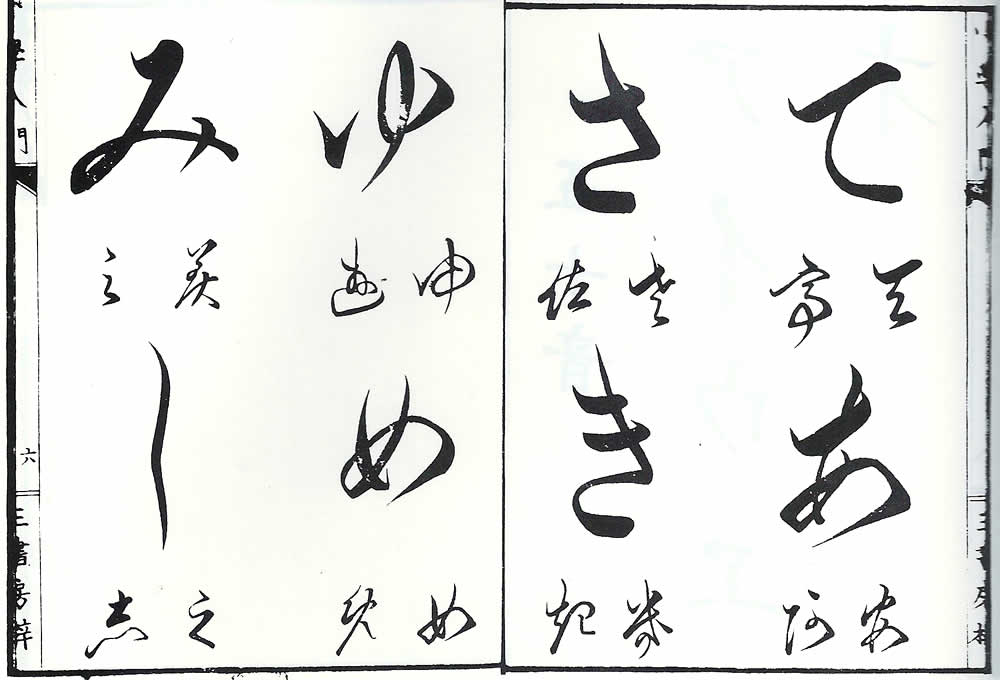 て
天 亭
あ
安 阿
さ
佐
き
幾 起
ゆ
由 遊
め
女 免
み
美
し
之 志
學入門
六
書房梓